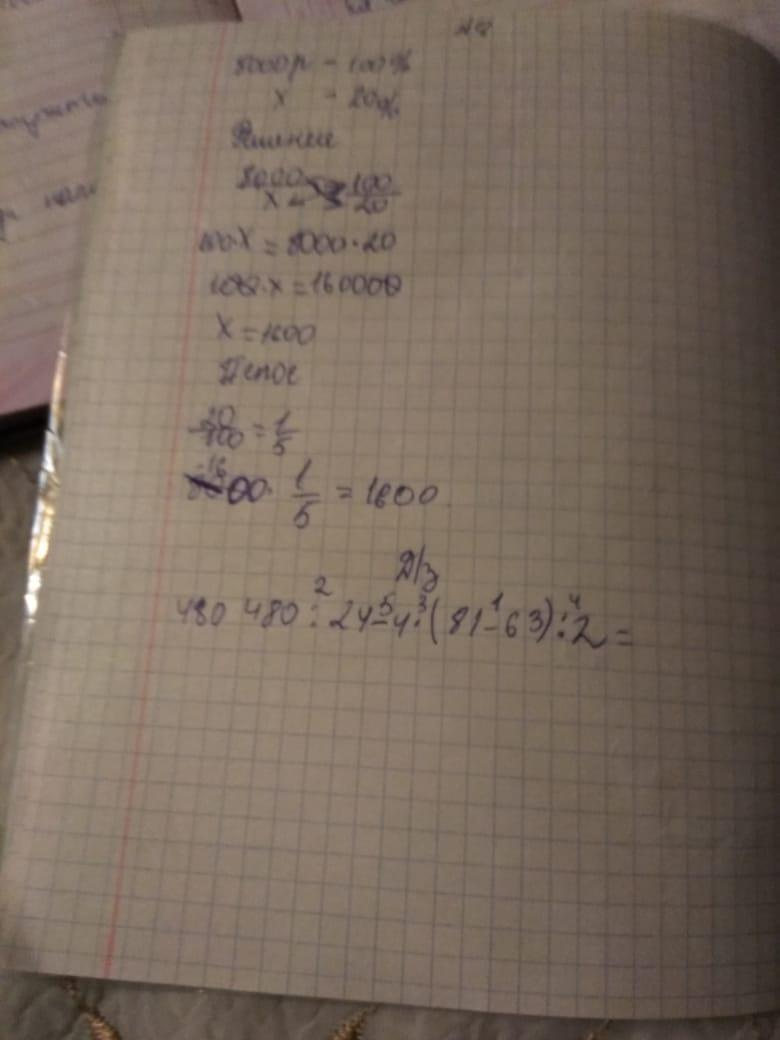 8000р - 100%
x - 20%
Решение
8000 / x = 100 / 20
100·x = 8000·20
100·x = 160000
x = 1600
20/100 = 1/5
16
00· 1/5 = 1600.
Д/з
2 5 3 1 4
480 480 : 24 - 4 : (81 - 63) : 2 =